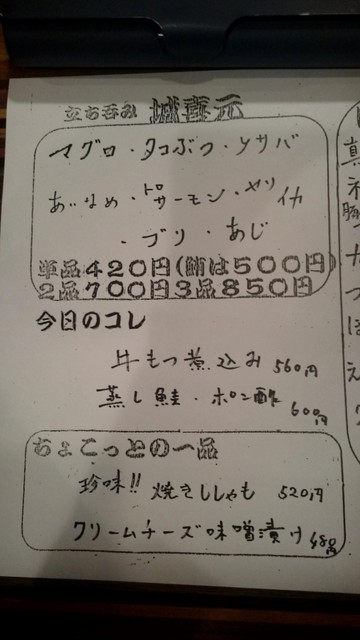 立ち呑み 城喜元
マグロ・タコぶつ・シメサバ
あいなめ・トロサーモン・ヤリイカ
・ブリ・あじ
単品420円(鮪は500円)
2品700円3品850円
今日のコレ
牛もつ煮込み 560円
蒸し鮭・ポン酢 600円
ちょこっとの一品
珍味!! 焼きししゃも 520円
クリームチーズ味噌漬け 480円
真